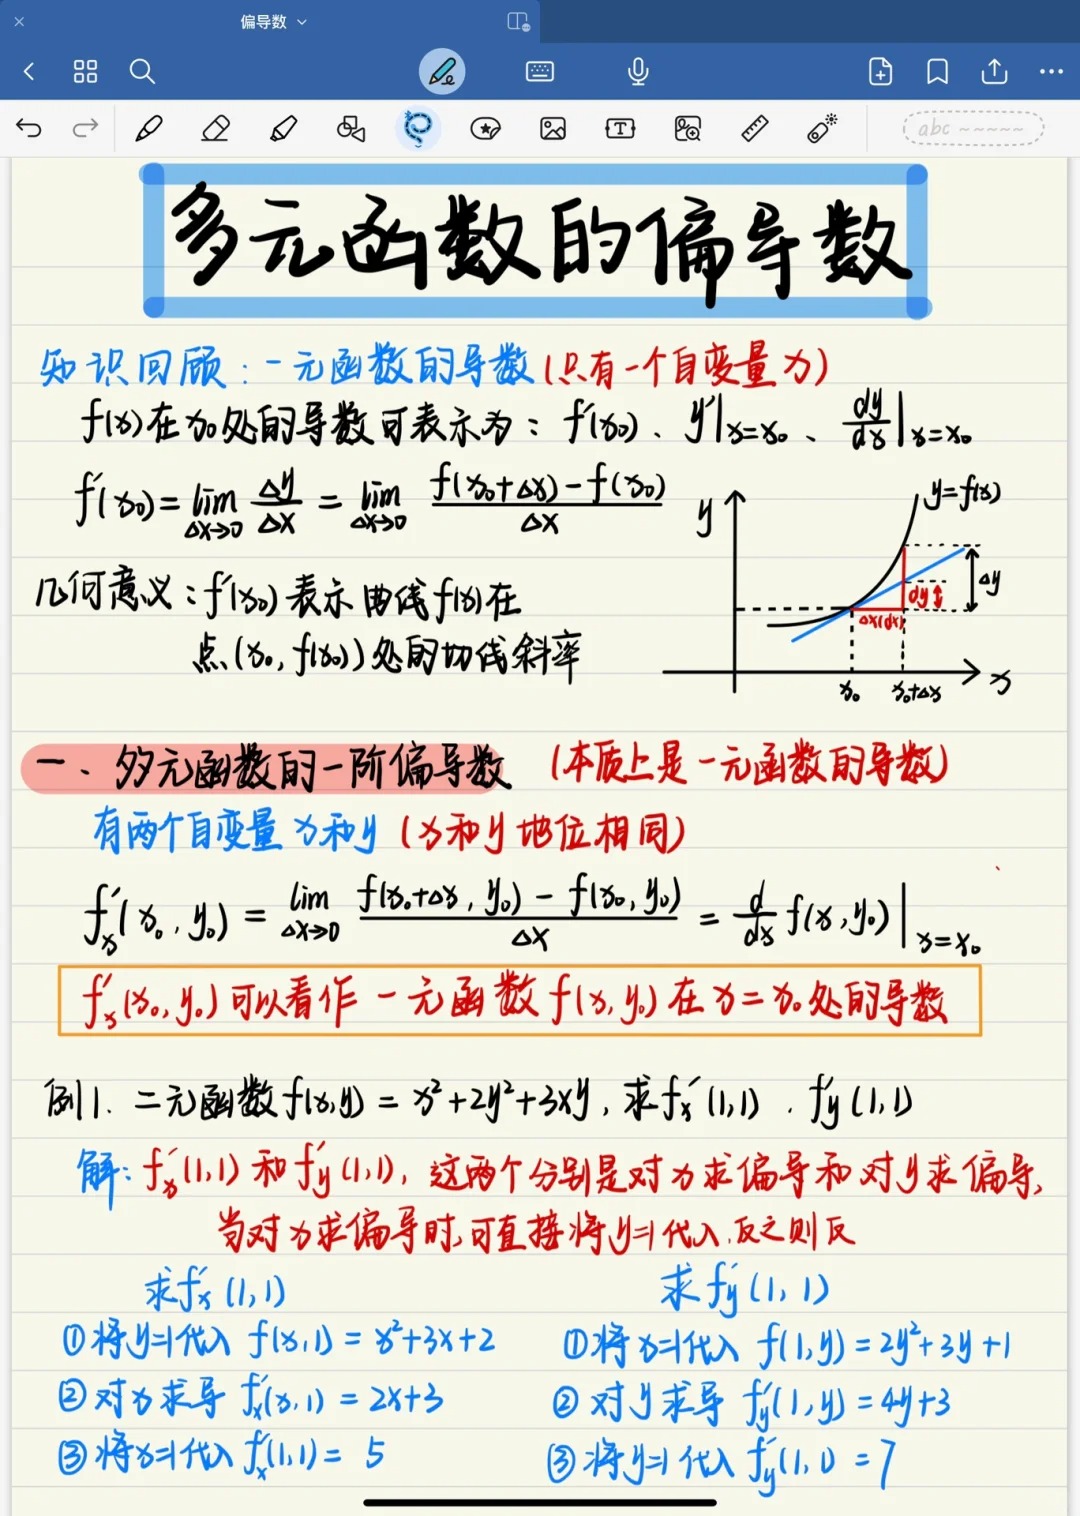 偏导数
abc
多元函数的偏导数
知识回顾:一元函数的导数(只有一个自变量x)
f(x)在x₀处的导数可表示为: f'(x₀)、y'|x=x₀、dy/dx|x=x₀
f'(x₀)=lim Δx→0 Δy/Δx = lim Δx→0 (f(x₀+Δx)-f(x₀))/Δx
y
y=f(x)
Δy
dy
Δx(dx)
x₀
x₀+Δx
x
几何意义:f'(x₀)表示曲线f(x)在
点(x₀,f(x₀))处的切线斜率
一、多元函数的一阶偏导数 (本质上是一元函数的导数)
有两个自变量x和y (x和y地位相同)
f'x(x₀,y₀) = lim Δx→0 (f(x₀+Δx,y₀)-f(x₀,y₀))/Δx = d/dx f(x,y₀)|x=x₀
f'x(x₀,y₀)可以看作一元函数f(x,y₀)在x=x₀处的导数
例1. 二元函数f(x,y)=x²+2y²+3xy,求f'x(1,1).f'y(1,1)
解:f'x(1,1)和f'y(1,1),这两个分别是对x求偏导和对y求偏导,
当对x求偏导时,可直接将y=1代入,反之则反
求f'x(1,1)
①将y=1代入 f(x,1)=x²+3x+2
②对x求导 f'x(x,1)=2x+3
③将x=1代入f'x(1,1)= 5
求f'y(1,1)
①将x=1代入 f(1,y)=2y²+3y+1
②对y求导 f'y(1,y)=4y+3
③将y=1代入 f'y(1,1)=7